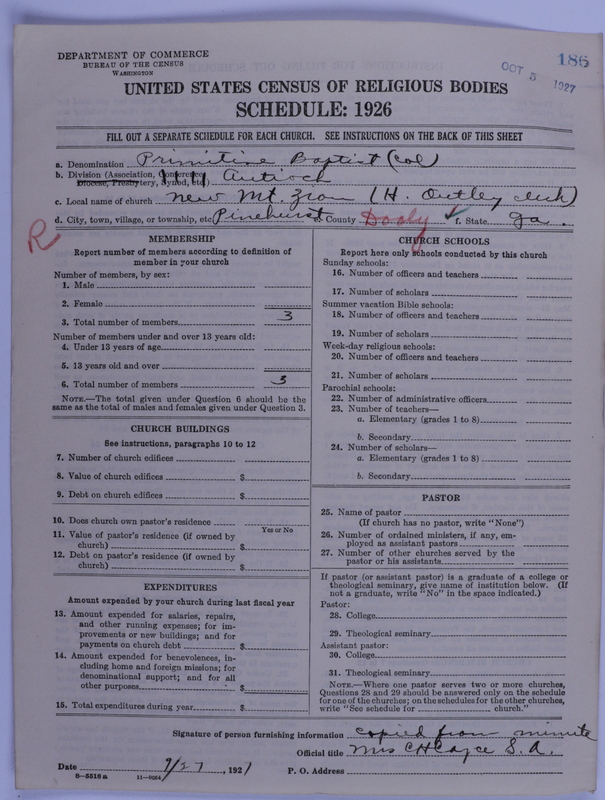 186
OCT 5 1927
DEPARTMENT OF COMMERCE
BUREAU OF THE CENSUS
WASHINGTON
UNITED STATES CENSUS OF RELIGIOUS BODIES
SCHEDULE: 1926
FILL OUT A SEPARATE SCHEDULE FOR EACH CHURCH. SEE INSTRUCTIONS ON THE BACK OF THIS SHEET
a. Denomination Primitive Baptist (Col)
b. Division (Association, Conference, Diocese, Presbytery, Synod, etc.) Antioch
c. Local name of church New Mt. Zion (H. Outley clerk)
d. City, town, village, or township, etc. Pinehurst e. County Dooly f. State Ga.
R
MEMBERSHIP
Report number of members according to definition of member in your church
Number of members, by sex:
1. Male
2. Female
3. Total number of members 3
Number of members under and over 13 years old:
4. Under 13 years of age
5. 13 years old and over
6. Total number of members 3
NOTE.—The total given under Question 6 should be the same as the total of males and females given under Question 3.
CHURCH BUILDINGS
See instructions, paragraphs 10 to 12
7. Number of church edifices
8. Value of church edifices $
9. Debt on church edifices $
10. Does church own pastor's residence
Yes or No
11. Value of pastor's residence (if owned by church) $
12. Debt on pastor's residence (if owned by church) $
EXPENDITURES
Amount expended by your church during last fiscal year
13. Amount expended for salaries, repairs, and other running expenses; for improvements or new buildings; and for payments on church debt $
14. Amount expended for benevolences, including home and foreign missions; for denominational support; and for all other purposes $
15. Total expenditures during year $
CHURCH SCHOOLS
Report here only schools conducted by this church
Sunday schools:
16. Number of officers and teachers
17. Number of scholars
Summer vacation Bible schools:
18. Number of officers and teachers
19. Number of scholars
Week-day religious schools:
20. Number of officers and teachers
21. Number of scholars
Parochial schools:
22. Number of administrative officers
23. Number of teachers—
a. Elementary (grades 1 to 8)
b. Secondary
24. Number of scholars—
a. Elementary (grades 1 to 8)
b. Secondary
PASTOR
25. Name of pastor
(If church has no pastor, write "None")
26. Number of ordained ministers, if any, employed as assistant pastors
27. Number of other churches served by the pastor or his assistants
If pastor (or assistant pastor) is a graduate of a college or theological seminary, give name of institution below. (If not a graduate, write "No" in the space indicated.)
Pastor:
28. College
29. Theological seminary
Assistant pastor:
30. College
31. Theological seminary
NOTE.—Where one pastor serves two or more churches, Questions 28 and 29 should be answered only on the schedule for one of the churches; on the schedules for the other churches, write "See schedule for church."
Signature of person furnishing information copied from minute
Official title Mrs C H Cayce S. A.
Date 9/27, 1927 P. O. Address
8-5518a 11-9064